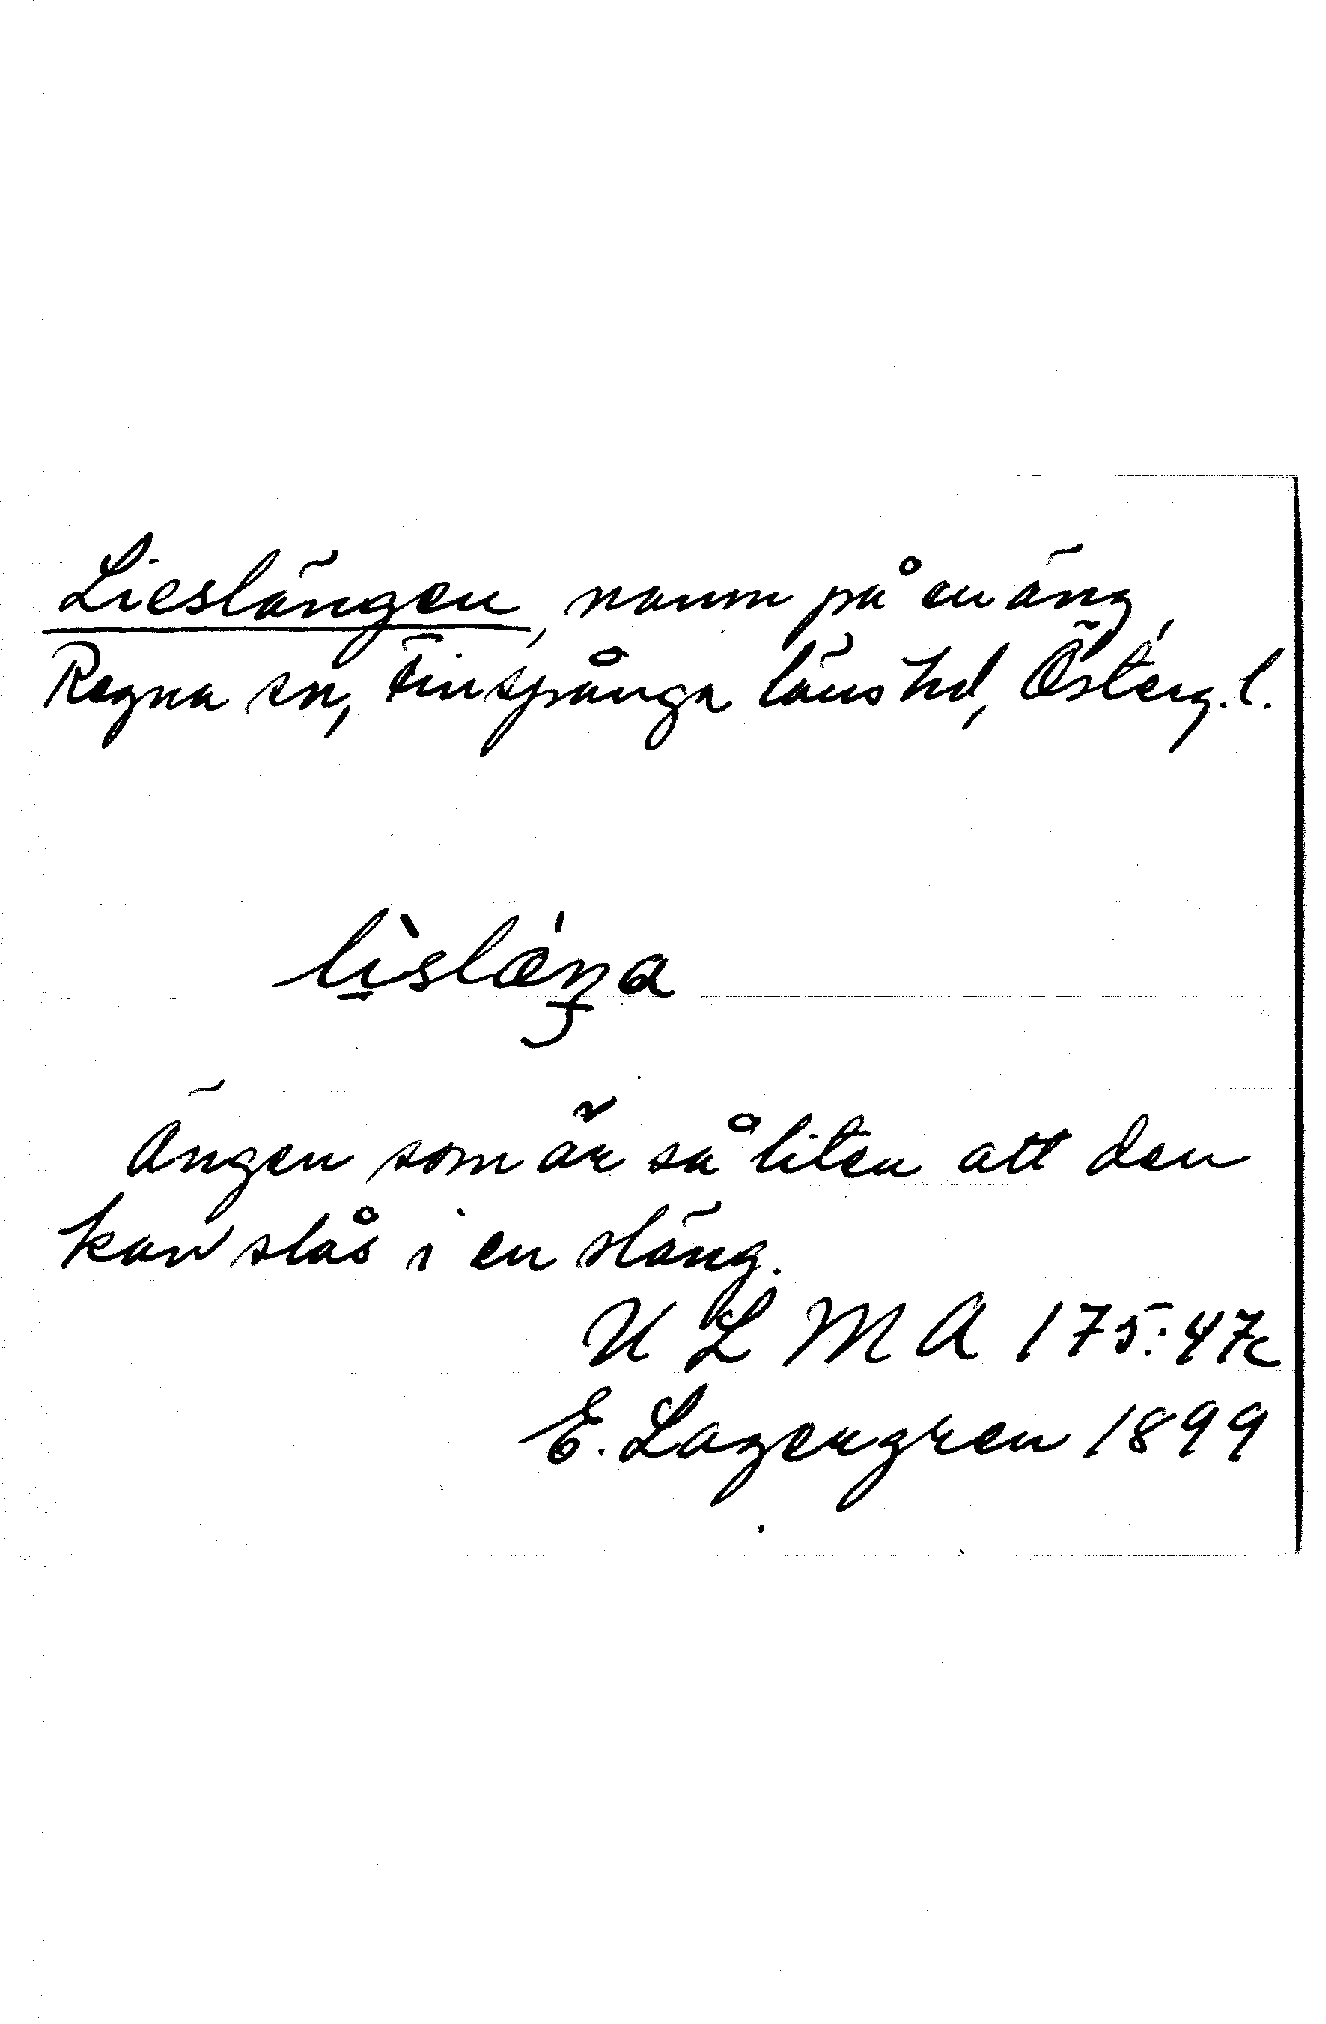 Lieslängen, namn på en äng,
Regna sn, Finspånga läns hd, Österg. l.
lìslǽŋa
Ängen som är så liten att den
kan slås i en släng.
U L M A 175:47c
E. Lagergren 1899